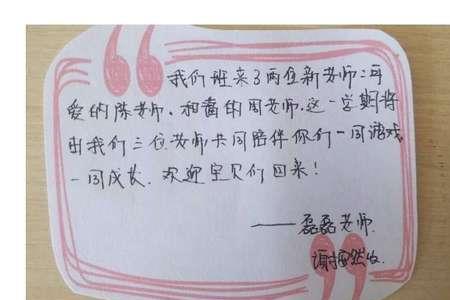 我们班来了两位新老师:可
爱的陈老师、和蔼的周老师.这一学期将
由我们三位老师共同陪伴你们一同游戏
一同成长.欢迎宝贝们回来!
——磊磊老师.
谢 然收